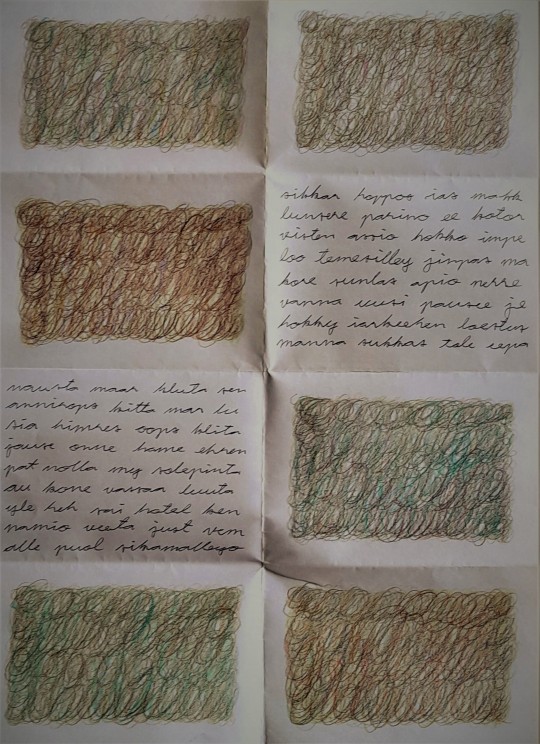 sikkar hoppos ias makk
lunsere parino ee kotor
visten assio hokko impe
loo temesilley jinpas ma
kore sunlas apio nerre
vanna uusi pausee je
hokky iarkeehen laestus
manna sukkas tale eepa
nausta maar kluta sen
annisops kitta mar lu
sia himres oops klita
jause onne hame ehren
pat nolla my solepinta
au kone vassaa luuta
yle huh sai hotel ken
namio veeta just vem
alle puol sikamalleyo